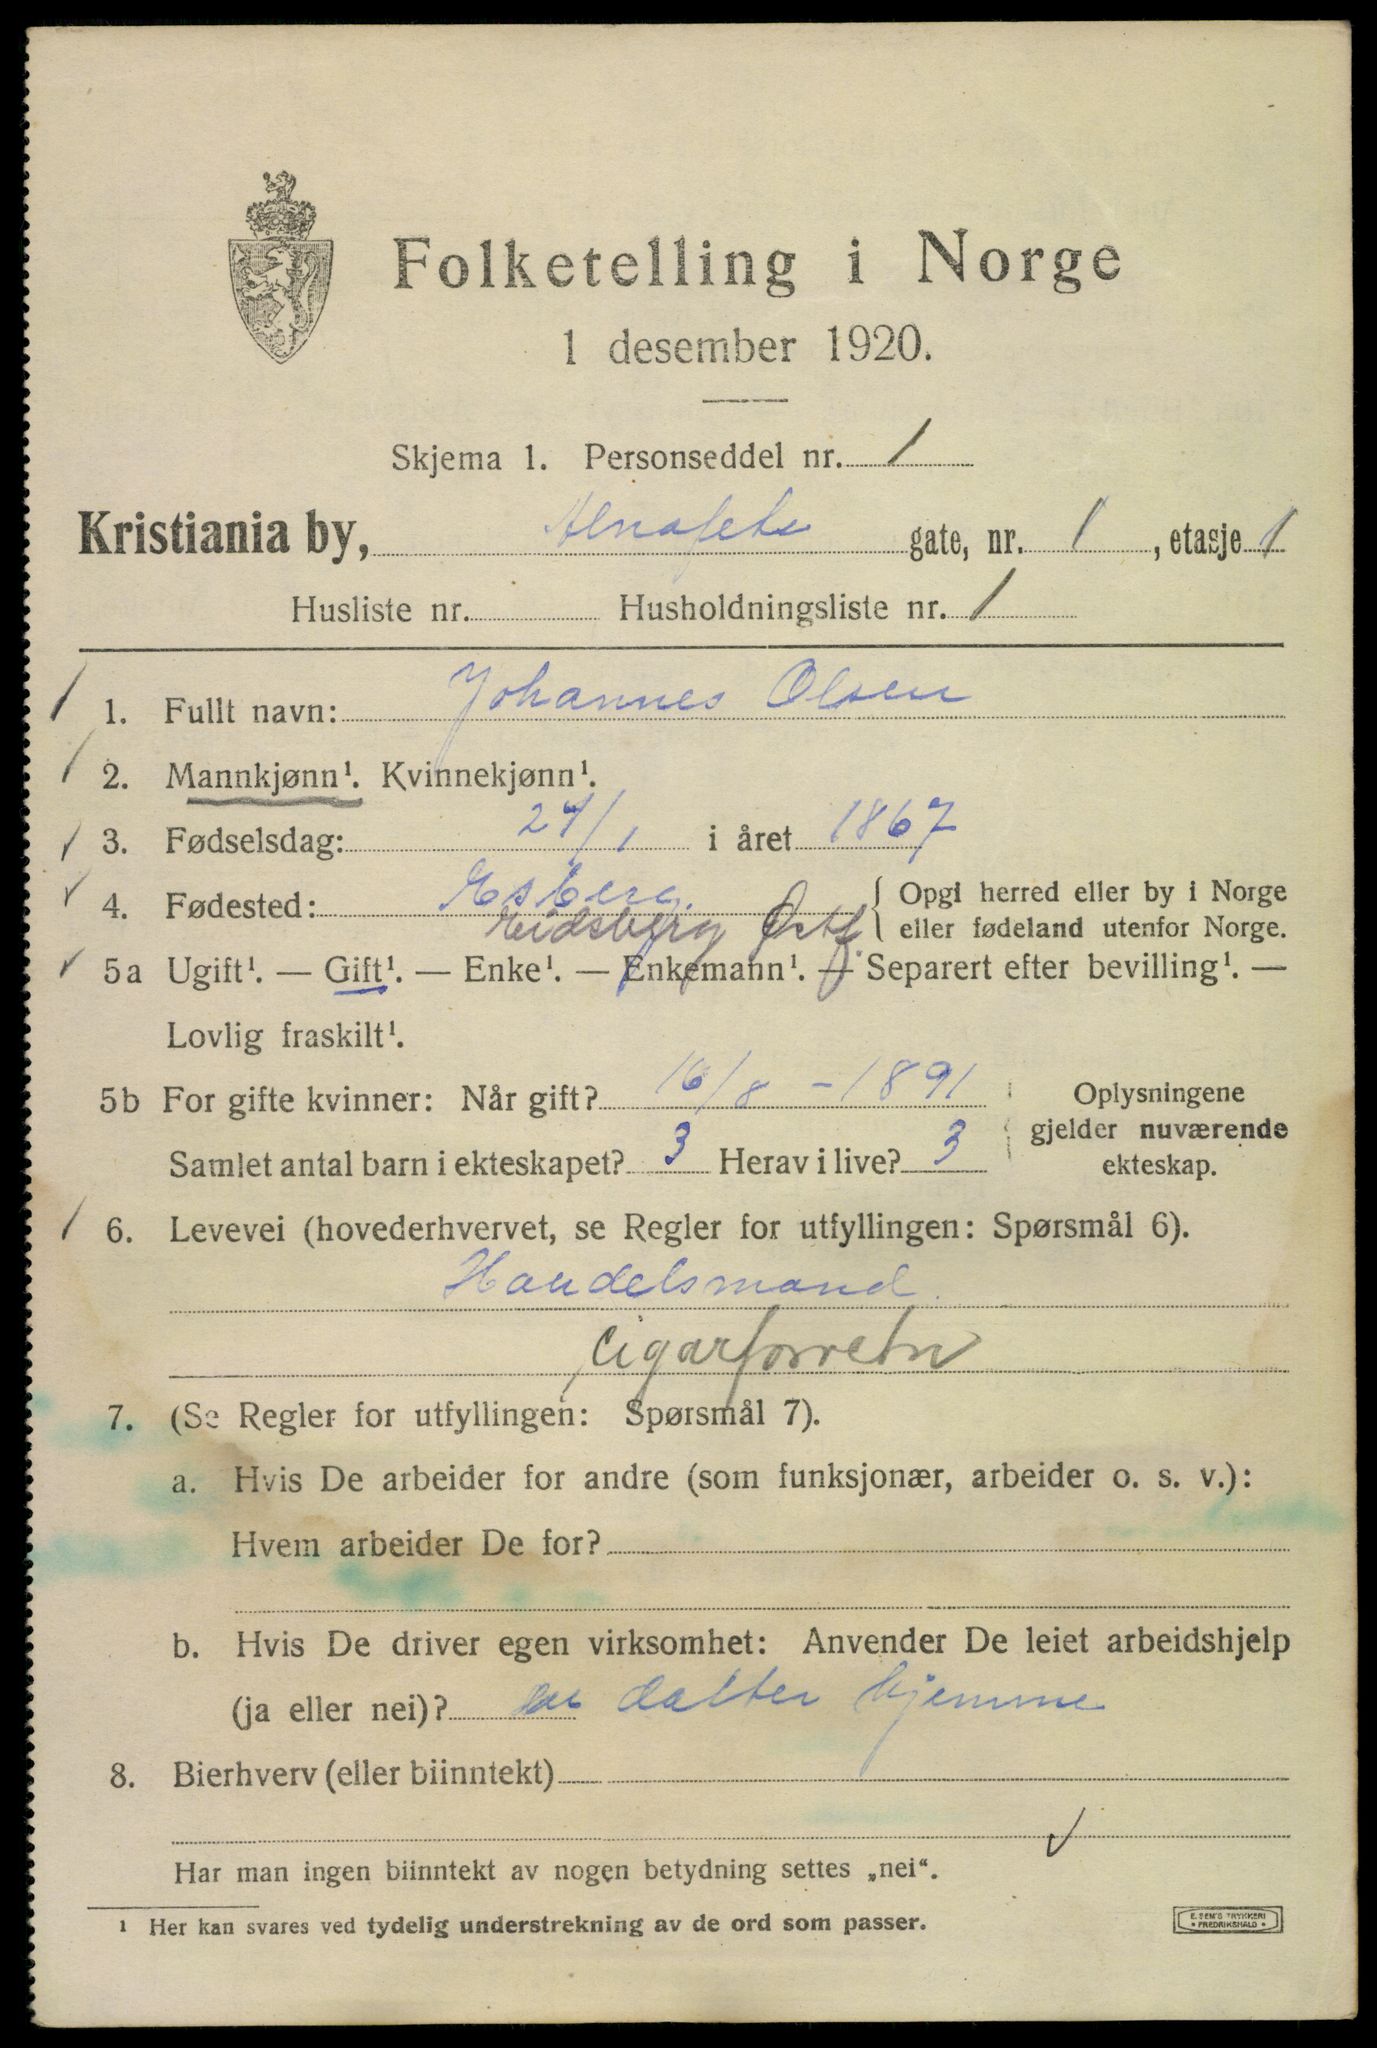 Folketelling i Norge
1 desember 1920.
Skjema 1. Personseddel nr. 1
Kristiania by, Alnafete gate, nr. 1, etasje 1
Husliste nr. Husholdningsliste nr. 1
1. Fullt navn: Johannes Olsen
2. Mannkjønn¹. Kvinnekjønn¹.
3. Fødselsdag: 24/1 i året 1867
4. Fødested: Esberg. Opgi herred eller by i Norge
Eidsberg Østf. eller fødeland utenfor Norge.
5a Ugift¹. — Gift¹. — Enke¹. — Enkemann¹. — Separert efter bevilling¹. —
Lovlig fraskilt¹.
5b For gifte kvinner: Når gift? 16/8 - 1891 Oplysningene
gjelder nuværende
Samlet antal barn i ekteskapet? 3 Herav i live? 3 ekteskap.
6. Levevei (hovederhvervet, se Regler for utfyllingen: Spørsmål 6).
Handelsmand.
Cigarforretn
7. (Se Regler for utfyllingen: Spørsmål 7).
a. Hvis De arbeider for andre (som funksjonær, arbeider o. s. v.):
Hvem arbeider De for?
b. Hvis De driver egen virksomhet: Anvender De leiet arbeidshjelp
(ja eller nei)? dalter hjemme
8. Bierhverv (eller biinntekt)
Har man ingen biinntekt av nogen betydning settes „nei“.
¹ Her kan svares ved tydelig understrekning av de ord som passer.
E. SEM'S TRYKKERI
• FREDRIKSHALD •